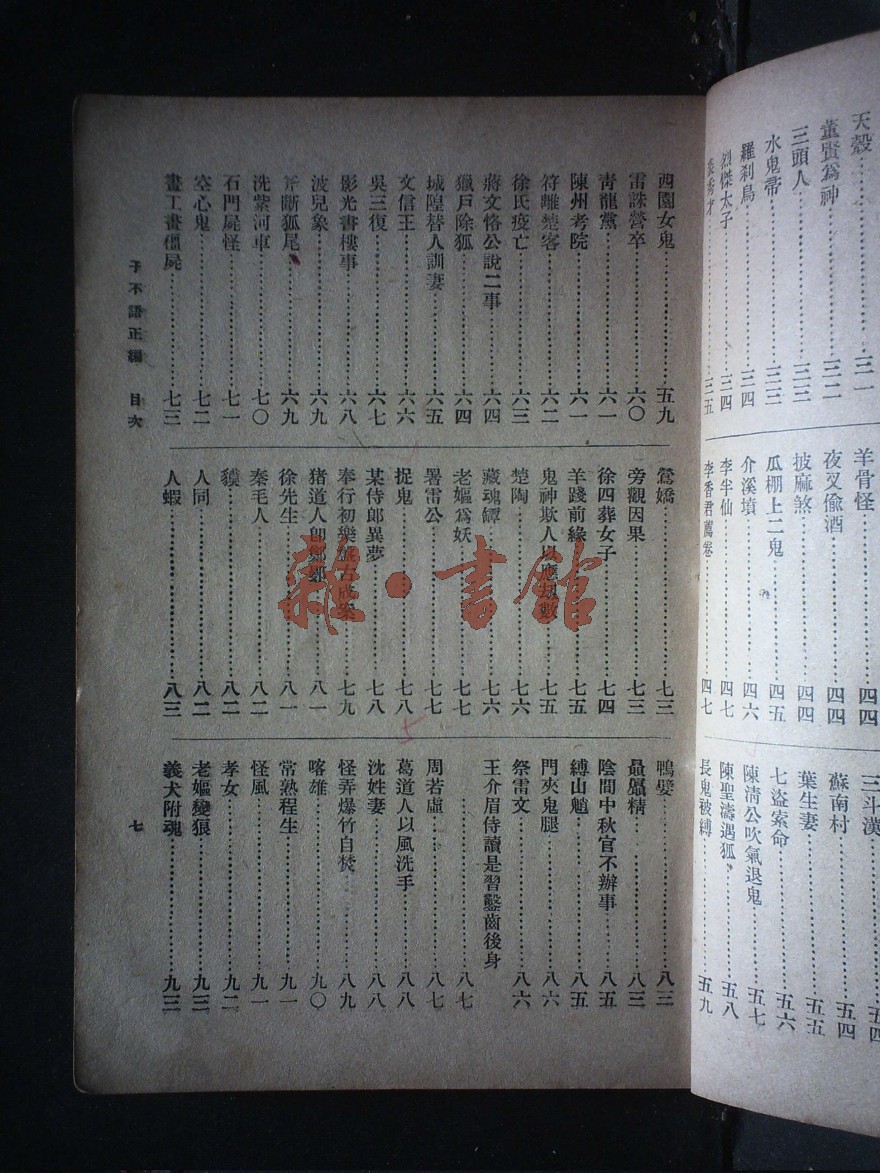 天殼……三一
董賢爲神……三二
三頭人……三三
水鬼帚……三三
羅刹鳥……三四
烈傑太子……三四
……三五
羊骨怪……四四
夜叉偸酒……四四
披麻煞……四四
瓜棚上二鬼……四五
介溪墳……四六
李半仙……四七
李香君薦卷……四七
三斗漢……五四
蘇南村……五四
葉生妻……五五
七盜索命……五六
陳淸公吹氣退鬼……五七
陳聖濤遇狐……五八
長鬼被縛……五九
西園女鬼……五九
雷誅營卒……六〇
靑龍黨……六一
陳州考院……六一
符離楚客……六二
徐氏疫亡……六三
蔣文恪公說二事……六四
獵戶除狐……六四
城隍替人訓妻……六五
文信王……六六
吳三復……六七
影光書樓事……六八
波兒象……六九
斧斷狐尾……六九
洗紫河車……七〇
石門屍怪……七一
空心鬼……七二
畫工畫僵屍……七三
鶯嬌……七三
旁觀因果……七三
徐四葬女子……七四
羊踐前緣……七五
鬼神欺人以應劫數……七五
楚陶……七六
藏魂罈……七六
老嫗爲妖……七七
署雷公……七七
捉鬼……七八
某侍郎異夢……七八
奉行初樂盤古成案……七九
猪道人卽鄭鄤……八一
徐先生……八一
秦毛人……八二
貘……八二
人同……八二
人蝦……八三
鴨嬖……八三
贔屭精……八三
陰間中秋官不辦事……八五
縛山魈……八五
門夾鬼腿……八六
祭雷文……八六
王介眉侍讀是習鑿齒後身
……八七
周若虛……八七
葛道人以風洗手……八八
沈姓妻……八八
怪弄爆竹自焚……八九
喀雄……九〇
常熟程生……九一
怪風……九一
孝女……九二
老嫗變狼……九三
義犬附魂……九三
子不語正編 目次
七
雜·書館